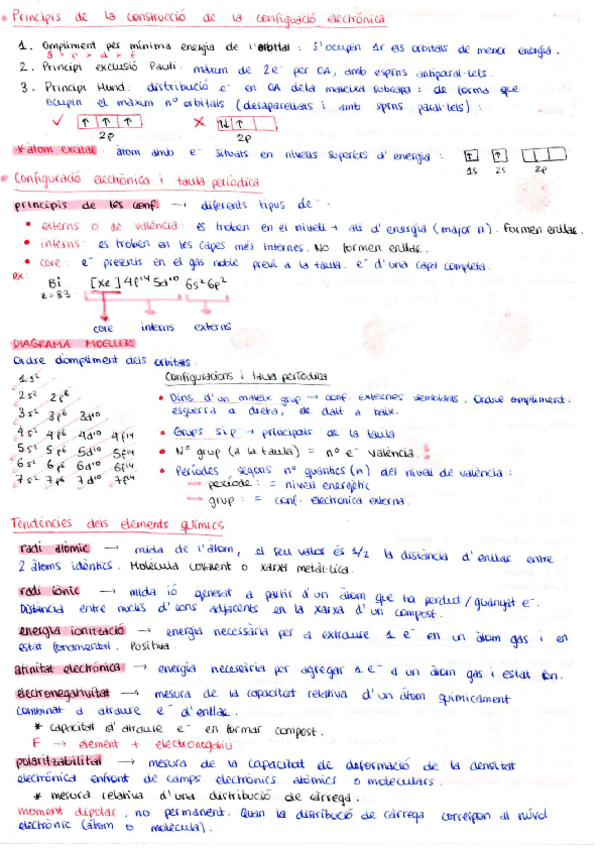 Principis de la construcció de la configuració electrònica
1. Ompliment per mínima energia de l'orbital : s'ocupen 1r els orbitals de menor energia.
s < p < d < f
2. Principi exclusió Pauli : màxim de 2e⁻ per OA, amb espins antiparal·lels.
3. Principi Hund : distribució e⁻ en OA de la mateixa subcapa : de forma que
ocupin el màxim nº orbitals (desaparellats i amb spins paral·lels) :
2p 2p
*àtom excitat : àtom amb e⁻ situats en nivells superiors d'energia :
1s 2s 2p
Configuració electrònica i taula periòdica
principis de les conf. → diferents tipus de ⁻.
• externs o de valència : es troben en el nivell + alt d'energia (major n). Formen enllaç.
• interns : es troben en les capes més internes. No formen enllaç.
• core : e⁻ presents en el gas noble previ a la taula. e⁻ d'una capa completa.
ex:
Bi [Xe] 4f¹⁴ 5d¹⁰ 6s² 6p²
z=83
core interns externs
DIAGRAMA MOELLER
Ordre d'ompliment dels orbitals.
1s²
2s² 2p⁶
3s² 3p⁶ 3d¹⁰
4s² 4p⁶ 4d¹⁰ 4f¹⁴
5s² 5p⁶ 5d¹⁰ 5f¹⁴
6s² 6p⁶ 6d¹⁰ 6f¹⁴
7s² 7p⁶ 7d¹⁰ 7f¹⁴
Configuracions i taula periòdica
• Dins d'un mateix grup → conf. externes semblants. Ordre ompliment:
esquerra a dreta, de dalt a baix.
• Grups s i p → principals de la taula
• Nº grup (a la taula) = nº e⁻ valència. !
• Períodes segons nº quàntics (n) del nivell de valència :
període : = nivell energètic
grup : = conf. electrònica externa.
Tendències dels elements químics
radi atòmic → mida de l'àtom, el seu valor és 1/2 la distància d'enllaç entre
2 àtoms idèntics. Molècula covalent o xarxa metàl·lica.
radi iònic → mida ió generat a partir d'un àtom que ha perdut / guanyat e⁻.
Distància entre nuclis d'ions adjacents en la xarxa d'un compost.
energia ionització → energia necessària per a extraure 1 e⁻ en un àtom gas i en
estat fonamental. Positiva.
afinitat electrònica → energia necessària per agregar 1 e⁻ a un àtom gas i estat fon.
electronegativitat → mesura de la capacitat relativa d'un àtom químicament
combinat a atraure e⁻ d'enllaç.
* capacitat d'atraure e⁻ en formar compost.
F → element + electronegatiu
polaritzabilitat → mesura de la capacitat de deformació de la densitat
electrònica enfront de camps electrònics atòmics o moleculars.
* mesura relativa d'una distribució de càrrega.
moment dipolar, no permanent. Quan la distribució de càrrega correspon al núvol
electrònic (àtom o molècula).